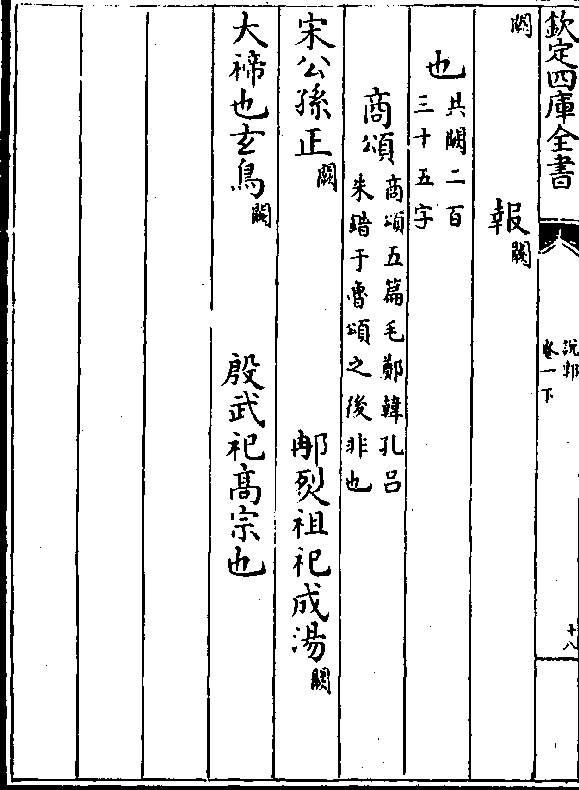 欽定四庫全書
說郛
卷一下
十八
闕 報闕
也共闕二百
三十五字
商頌商頌五篇毛鄭韓孔呂
朱錯于魯頌之後非也
宋公孫正闕 那烈祖祀成湯闕
大禘也玄鳥闕 殷武祀高宗也